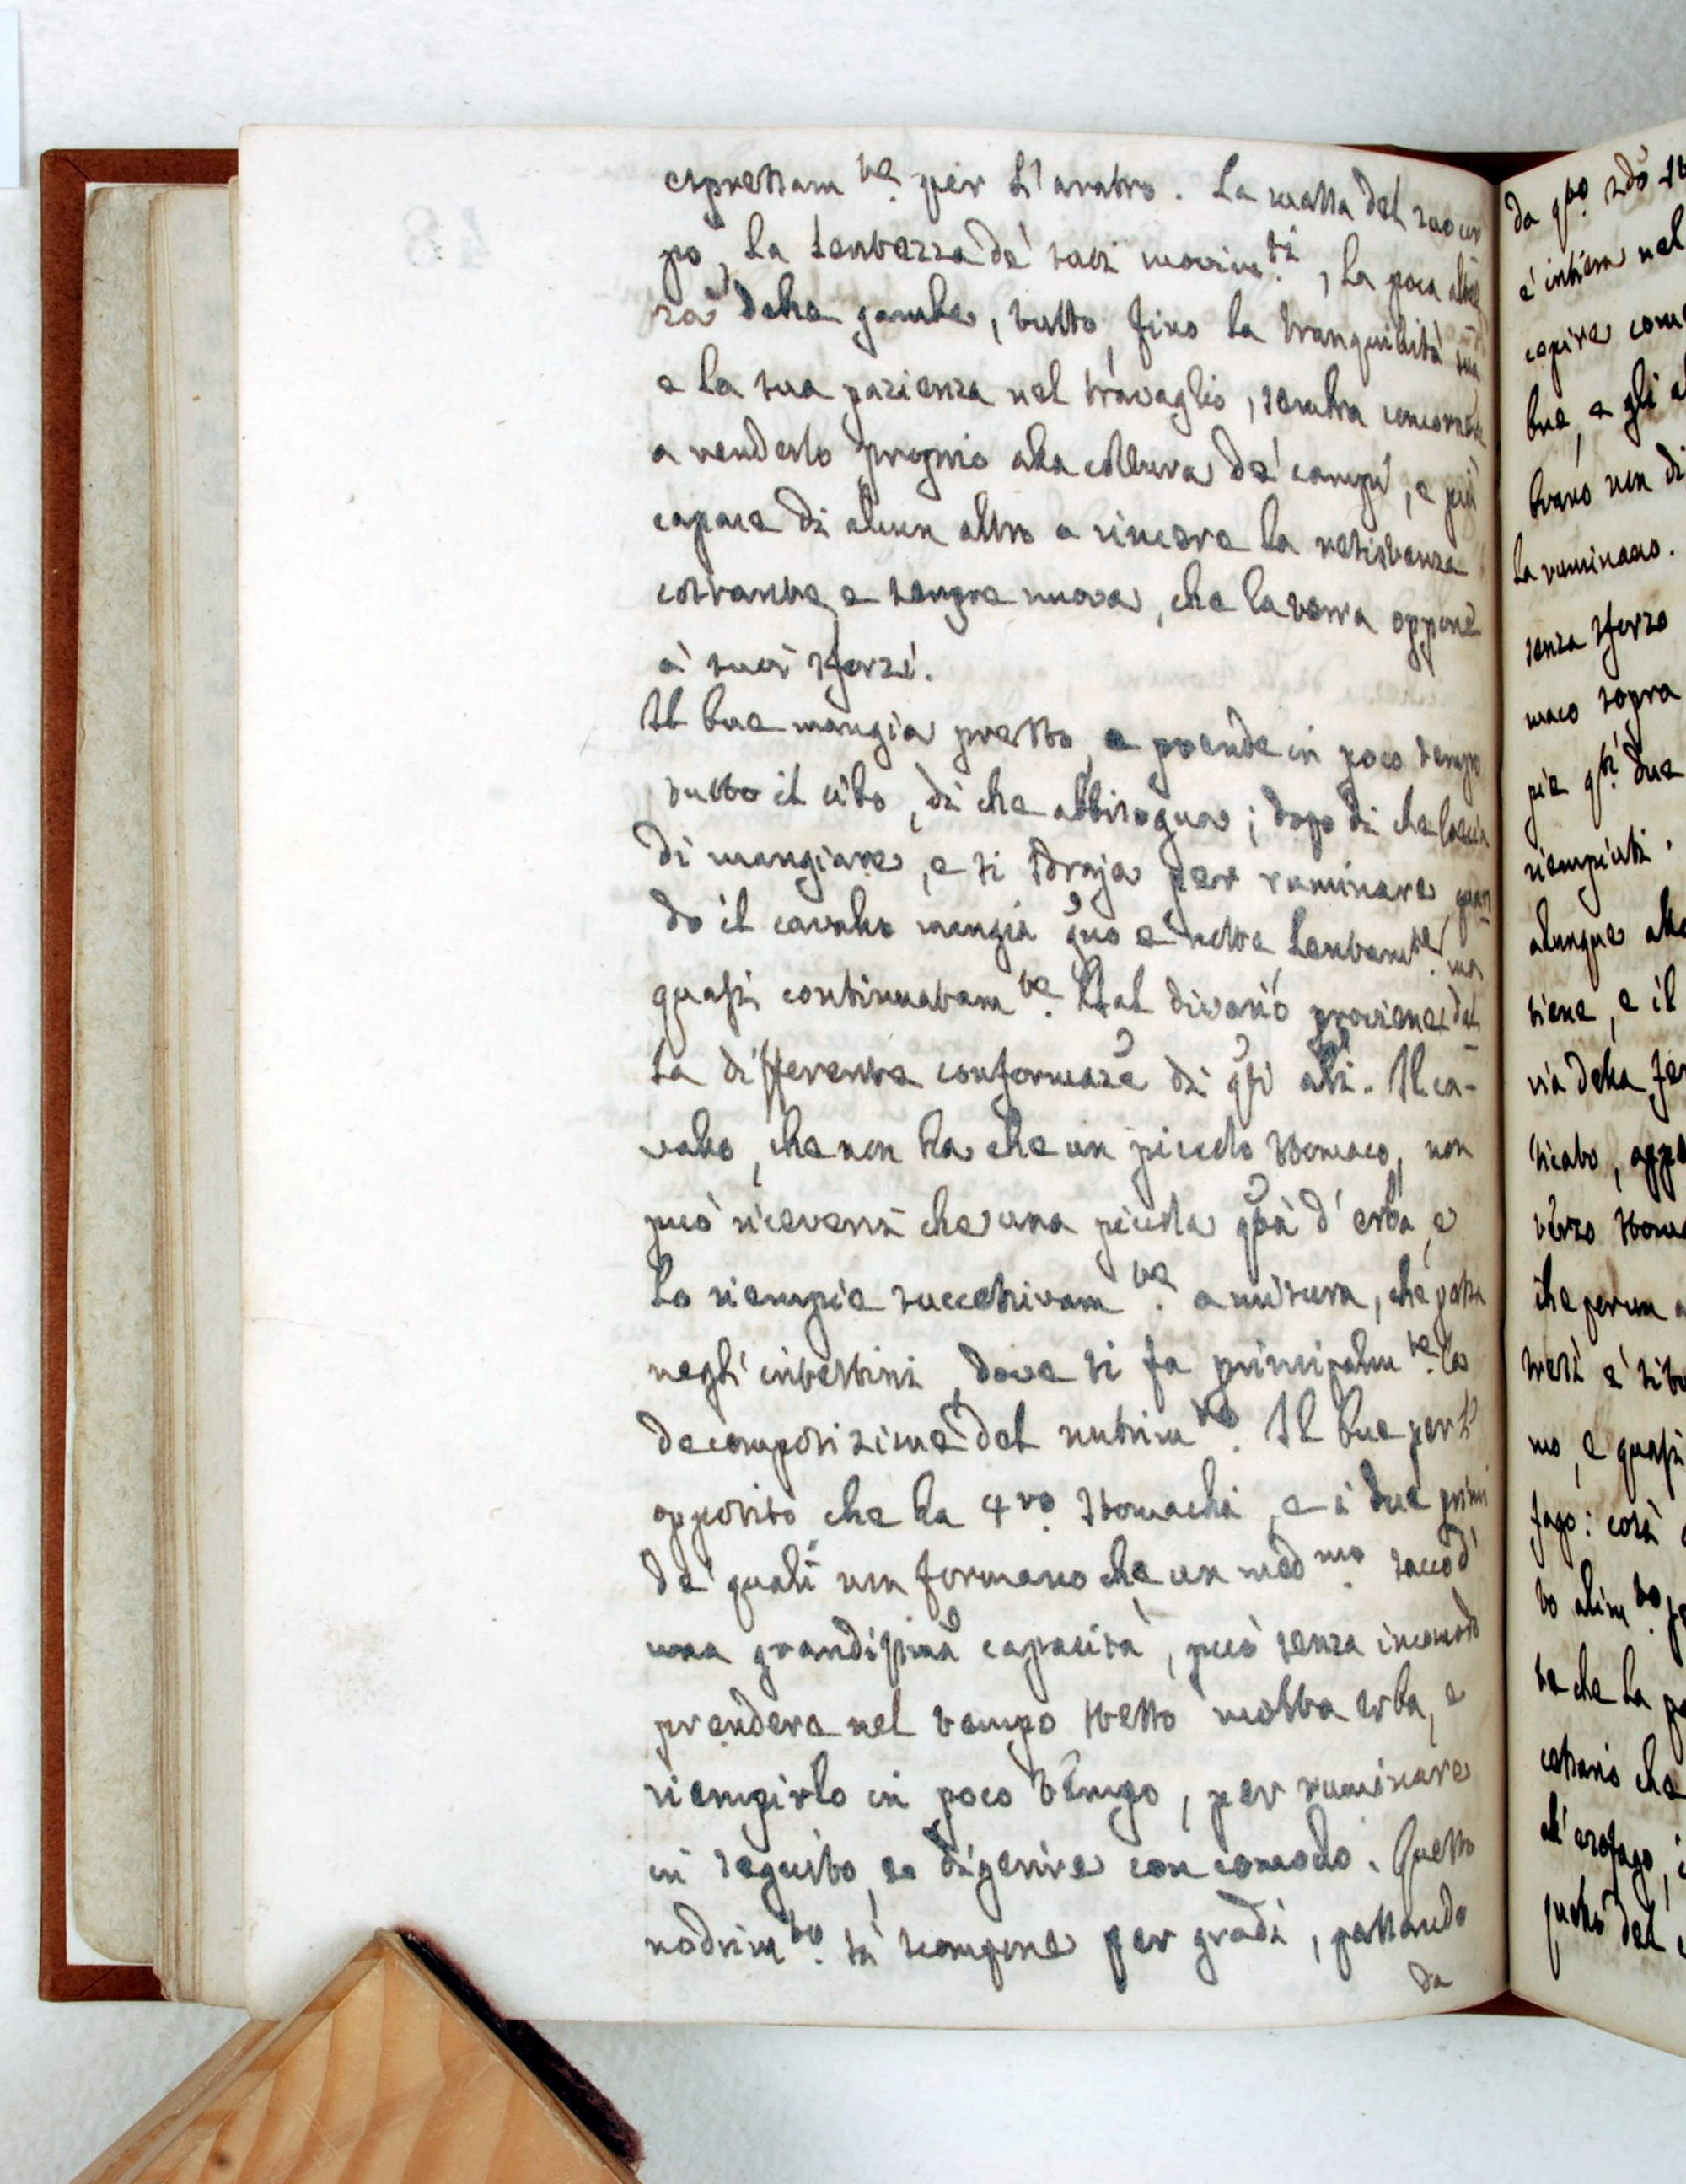 espressam.te per l'aratro. La massa del suo cor
po, la lentezza de' suoi movim.ti, la poca altez
za delle gambe, tutto, fino la tranquillità sua
e la sua pazienza nel travaglio, sembra concorrere
a renderlo proprio alla coltura de' campi, e più
capace di alcun altro a vincere la resistenza
costante, e sempre nuova, che la terra oppone
a' suoi sforzi.
Il bue mangia presto, e prende in poco tempo
tutto il cibo, di che abbisogna; dopo di che lascia
di mangiare, e si sdraja per ruminare, quan
do il cavallo mangia gno e notte lentam.te, ma
quasi continuatam.te. Tal divario proviene dal
la differente conformaze di qsti ali. Il ca-
vallo, che non ha che un piccolo stomaco, non
può ricevervi che una piccola qtà d'erba, e
lo riempie successivam.te a misura, che passa
negli intestini, dove si fa principalm.te la
decomposizione del nutrim.to. Il bue per l'
opposito che ha 4.ro stomachi, e i due primi
de' quali non formano che un med.mo sacco d'
una grandissima capacità, può senza incomodo
prendere nel tempo stesso molta erba, e
riempirlo in poco tempo, per ruminare
in seguito, e digerire con comodo. Questo
nodrim.to si scompone per gradi, passando
da
da q.to
è intiera nel
capire com
bue, e gli a
trano non di
la ruminano.
senza sforzo
maco sopra
pie q.ti due
riempiuti.
alunque
tiene, e il
via della fer
sicato, appe
terzo stoma
che per un
mo, e quasi
fago: così
to alim.to
te che la pa
all'esofago,